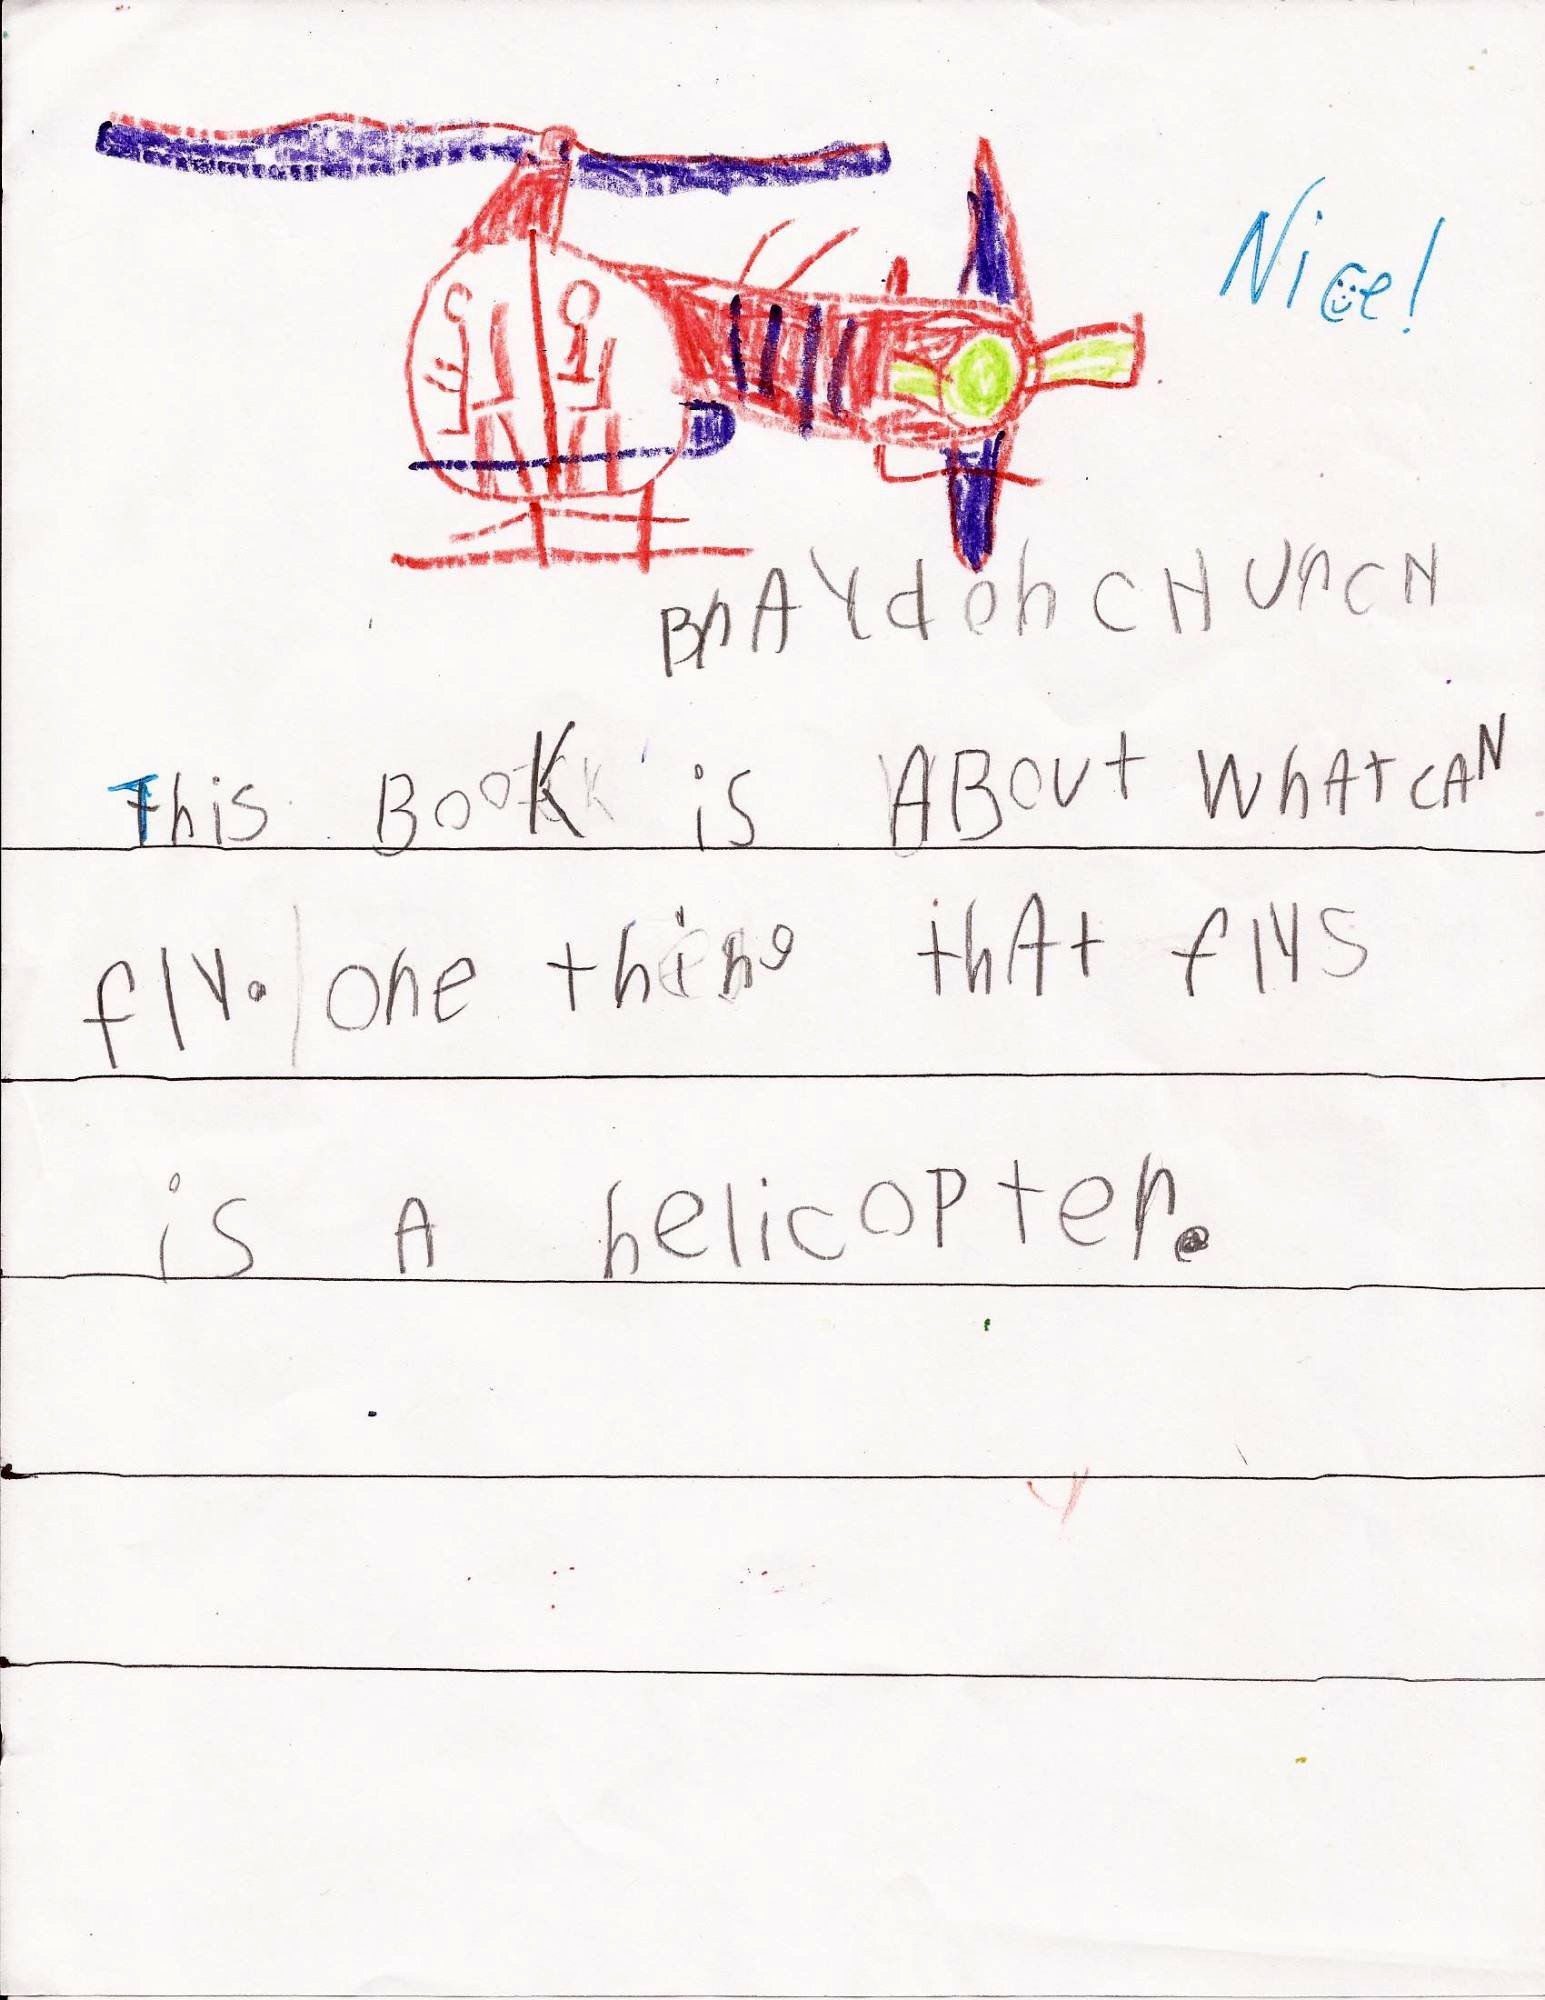 Nice!
BrAYdon CHUrCH
This BooK is ABOUt WhAt CAN
fly. One thing thAt flys
is A helicoPter.